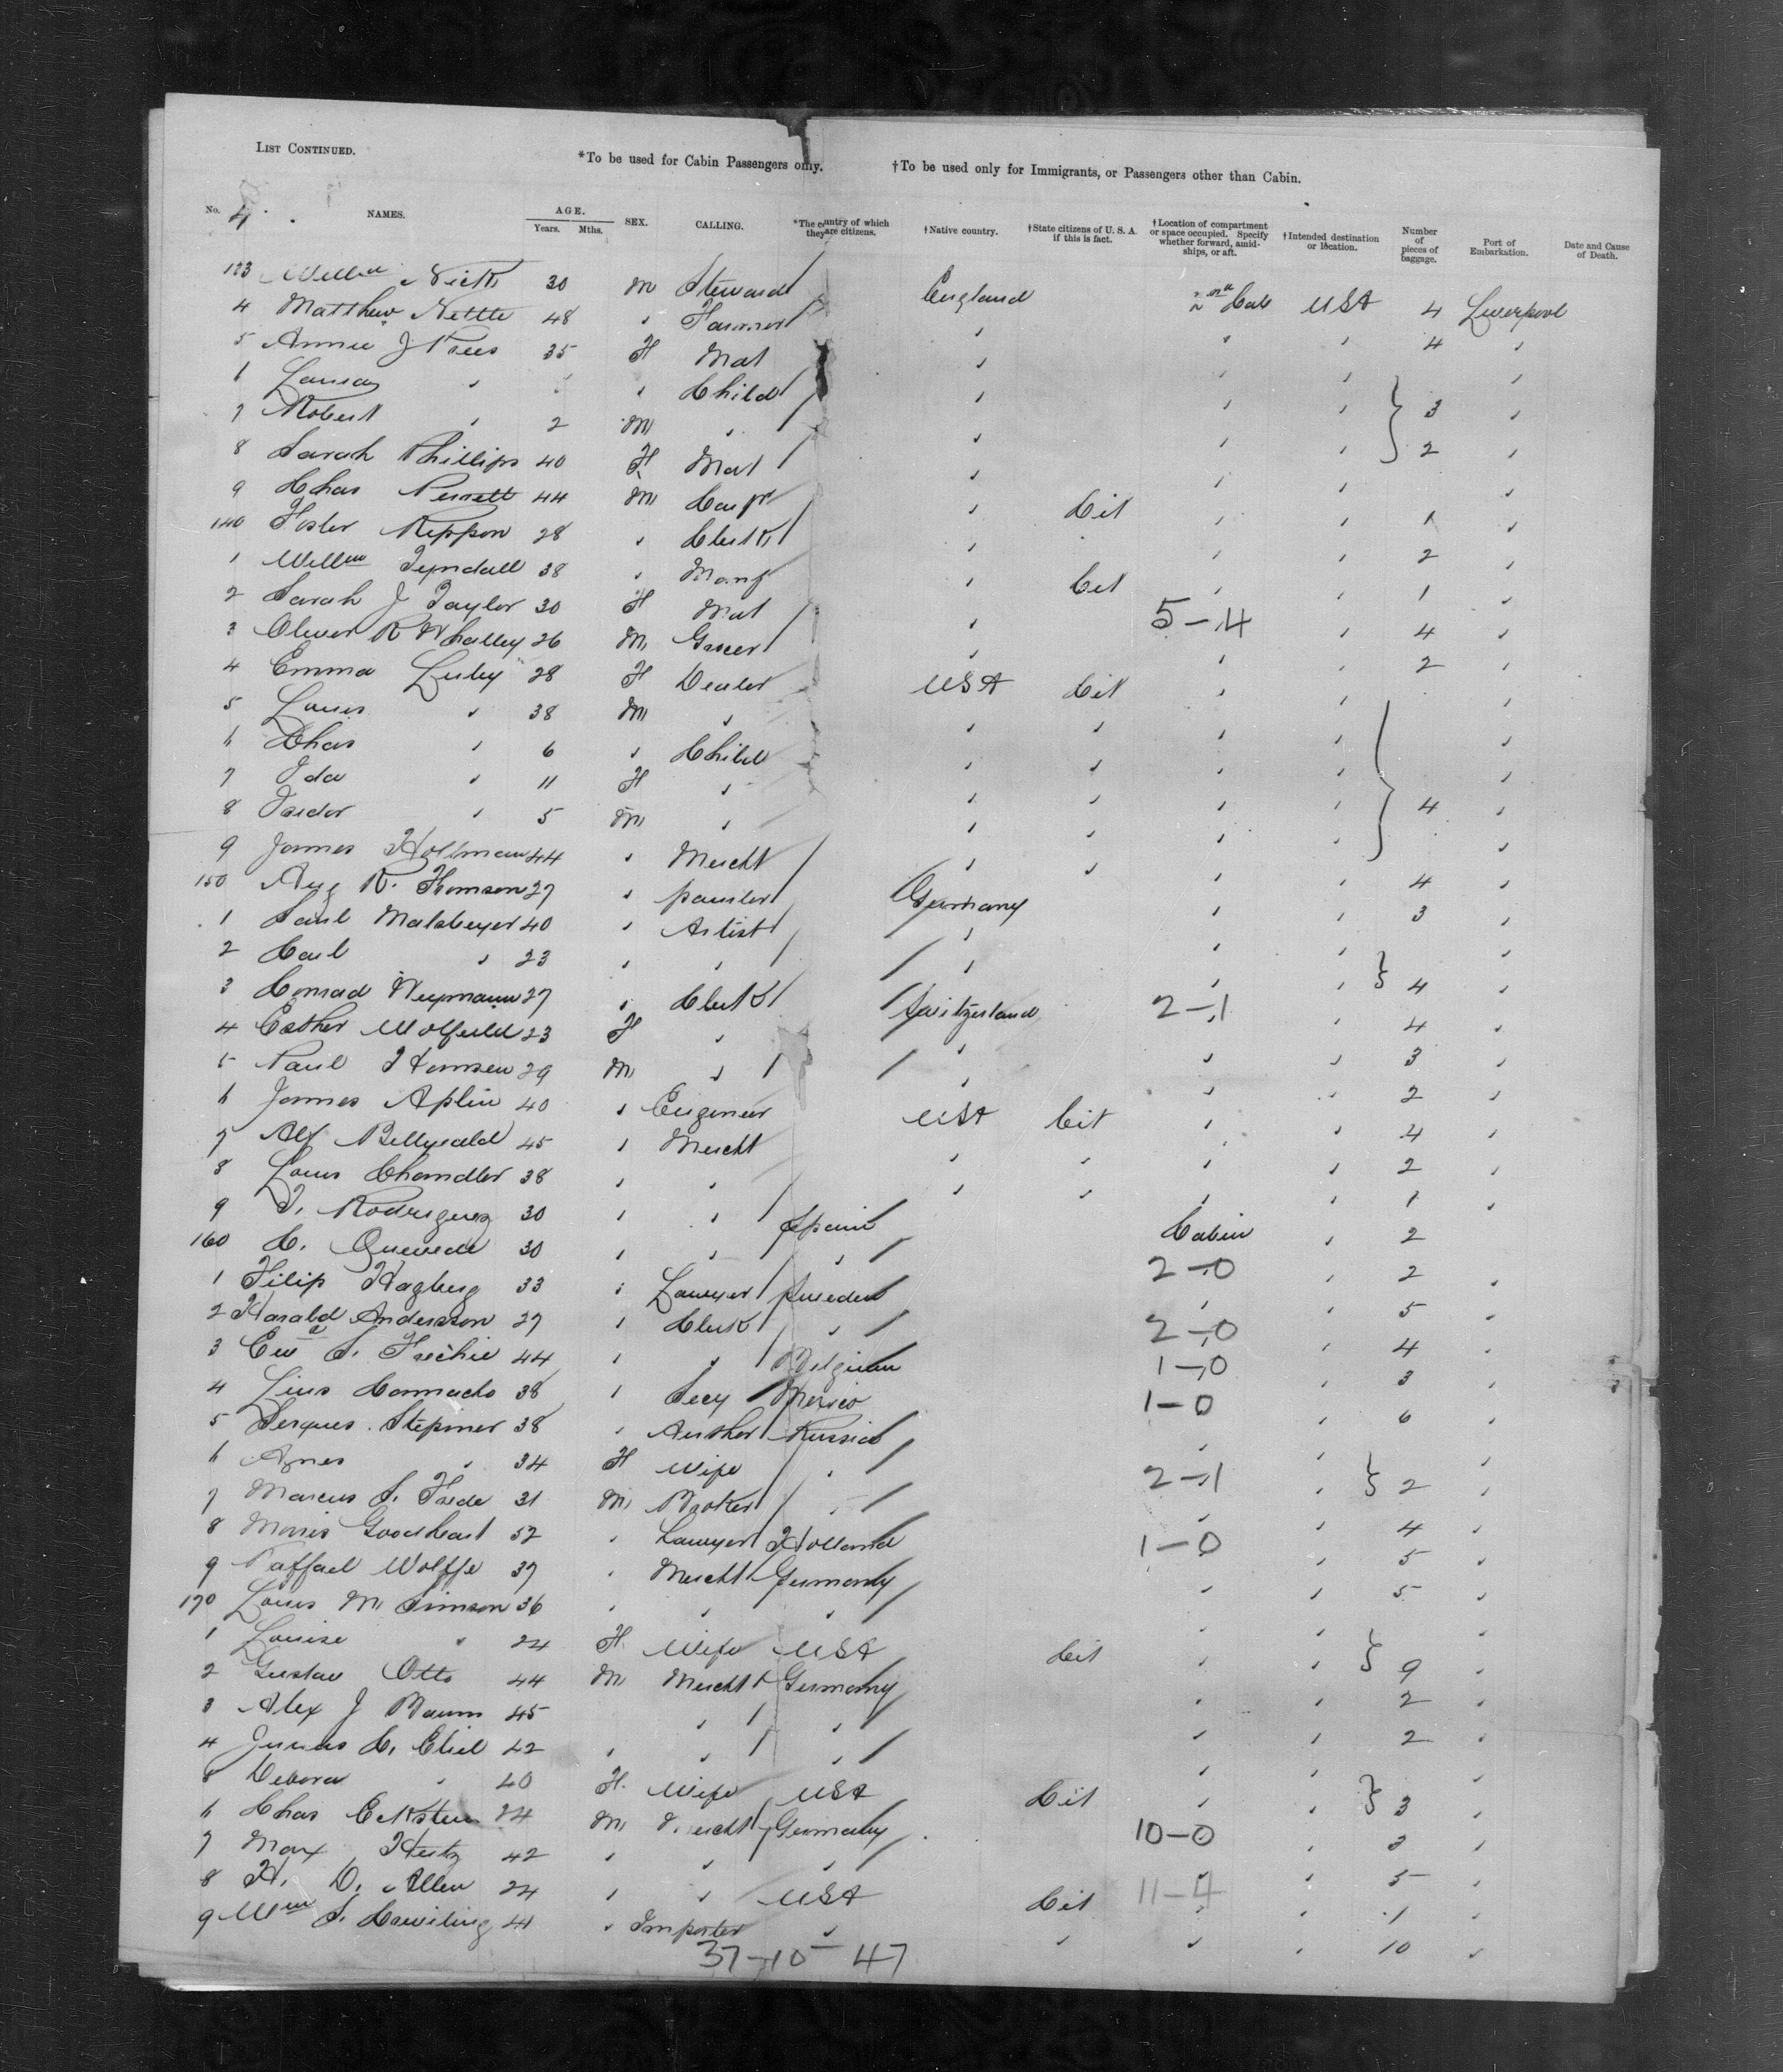 LIST CONTINUED.
*To be used for Cabin Passengers only. †To be used only for Immigrants, or Passengers other than Cabin.
No. 4. NAMES. AGE. Years. Mths. SEX. CALLING. *The country of which they are citizens. †Native country. †State citizens of U. S. A. if this is fact. †Location of compartment or space occupied. Specify whether forward, amidships, or aft. †Intended destination or location. Number of pieces of baggage. Port of Embarkation. Date and Cause of Death.
133 Willm 30 M Steward England 2nd Cab USA 4 Liverpool
4 Matthew Nettle 48 " Farmer " " " 4 "
5 Annie J 35 F Mat " " " "
6 " " Child " " " 3 "
7 Robert " 2 M " " " " "
8 Sarah Phillips 40 F Mat " " " 2 "
9 Chas 44 M Carpr " Cit " " 1 "
140 Foster Rippon 28 " Clerk " " " 2 "
1 Willm Tyndall 38 " Manf " Cit " " 1 "
2 Sarah J Taylor 30 F Mat " 5-4 " 4 "
3 Oliver R Whalley 26 M Grocer " " " 2 "
4 Emma 28 F Dealer USA Cit " " "
5 Louis " 38 M " " " " " "
6 Chas " 6 " Child " " " " "
7 Ida " 11 F " " " " " 4 "
8 Isidor " 5 M " " " " " "
9 James Hollman 44 " Mercht " " " " 4 "
150 Aug R. Thomson 27 " painter Germany " " 3 "
1 Saul 40 " Artist " " " "
2 Carl " 23 " " " " " 4 "
3 Conrad Weymann 27 " Clerk Switzerland 2-1 4 "
4 Esther 23 F " " " " 3 "
5 Paul 29 M " " " " 2 "
6 James Aplin 40 " Engineer USA Cit " " 4 "
7 Alf 45 " Mercht " " " " 2 "
8 Louis Chandler 38 " " " " " " 1 "
9 Rodriguez 30 " " Spain Cabin " 2
160 C. Quevedo 30 " " " 2-0 " 2 "
1 Filip Hagberg 33 " Lawyer Sweden " " 5 "
2 Harald Andersson 27 " Clerk " 2-0 " 4 "
3 S. 44 " " Belgium 1-0 " 3 "
4 Camacho 38 " Secy Mexico 1-0 " 6 "
5 38 " Author Russia " " "
6 Agnes " 34 F Wife " 2-1 " 2 "
7 Marcus S. 31 M " " " 4 "
8 Morris Goodheart 52 " Lawyer Holland 1-0 " 5 "
9 Raffael Wolffe 37 " Mercht Germany " " 5 "
170 Louis M Simson 36 " " " " " "
1 Louise " 24 F Wife USA Cit " " 9 "
2 Gustav Otto 44 M Mercht Germany " " 2 "
3 Alex J Baum 45 " " " " 2 "
4 C. 42 " " " " " "
5 Debora " 40 F Wife USA Cit " " 3 "
6 Chas Eckstein 24 M Mercht Germany 10-0 " 3 "
7 Max 42 " " " " " 5 "
8 H. D. Allen 24 " " USA Cit 11-4 " 1 "
9 Wm S. 41 " Importer " " " " 10 "
37-10 - 47